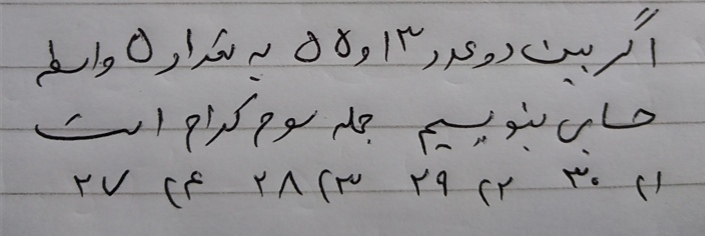 اگر بین دو عدد ۱۳ و ۵۵ به تعداد ۵ واسطه
حسابی بنویسیم جمله سوم کدام است
۱) ۳۰ ۲) ۲۹ ۳) ۲۸ ۴) ۲۷